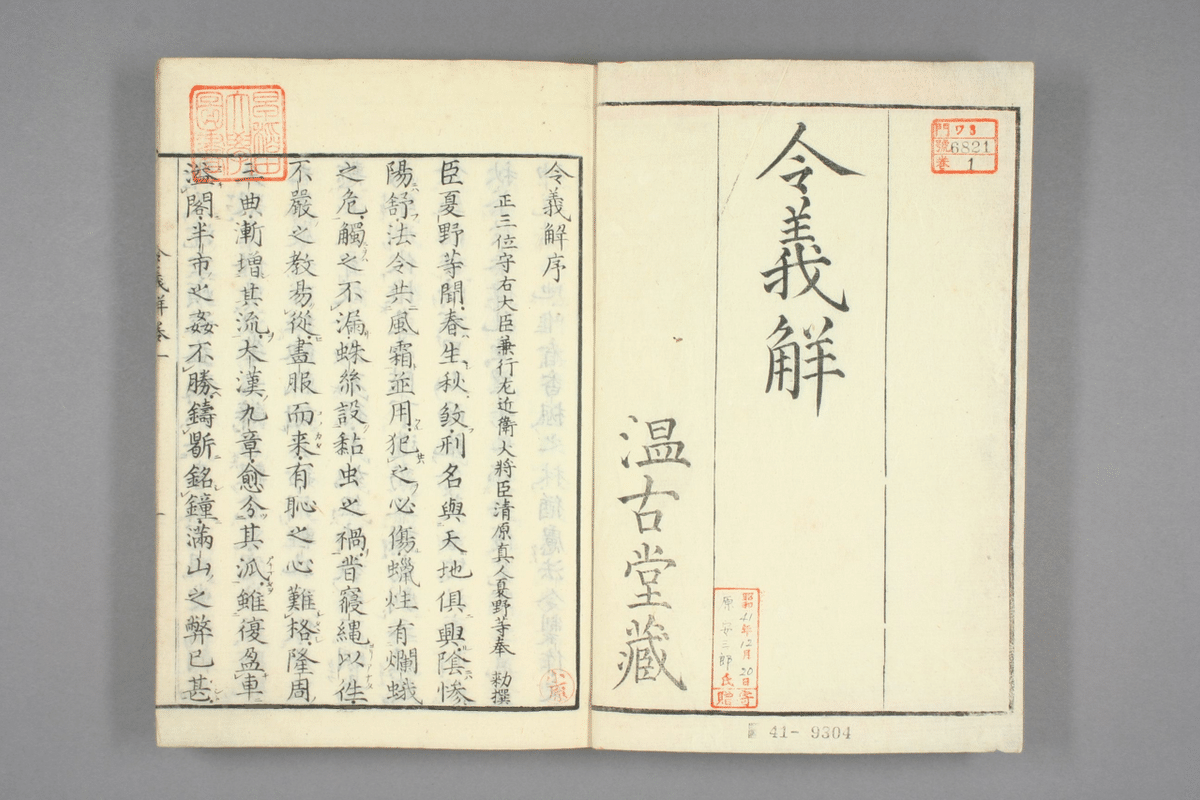 令義解
温古堂藏
門 ワ3
號 6821
巻 1
昭和41年12月20日
原安三郎氏
寄贈
41- 9304
令義解序
正三位守右大臣兼行左近衛大將臣清原真人夏野等奉 勅撰
臣夏野等聞春生秋殺刑名與天地俱興陰慘
陽舒法令共風霜並用犯之必傷蠟炷有爛蛾
之危觸之不漏蛛絲設黏虫之禍昔寢繩以往
不嚴之教易從畫服而来有恥之心難格隆周
三典漸增其流大漢九章愈分其派雖復盈車
溢閣半市之姦不勝鑄鼎銘鐘滿山之弊已甚
令義解巻一
小原